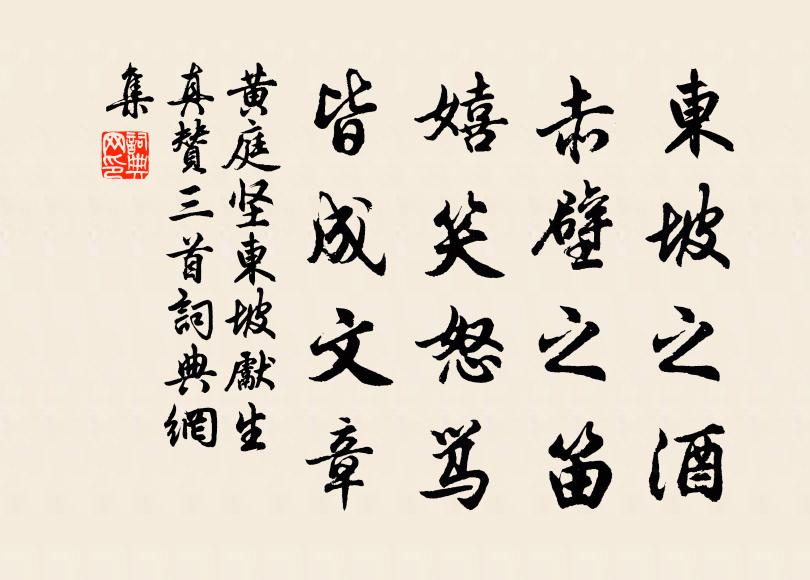 東坡之酒
赤壁之笛
嬉笑怒骂
皆成文章
黄庭坚東坡獻生
真贊三首詞典網
集
詞典
网印